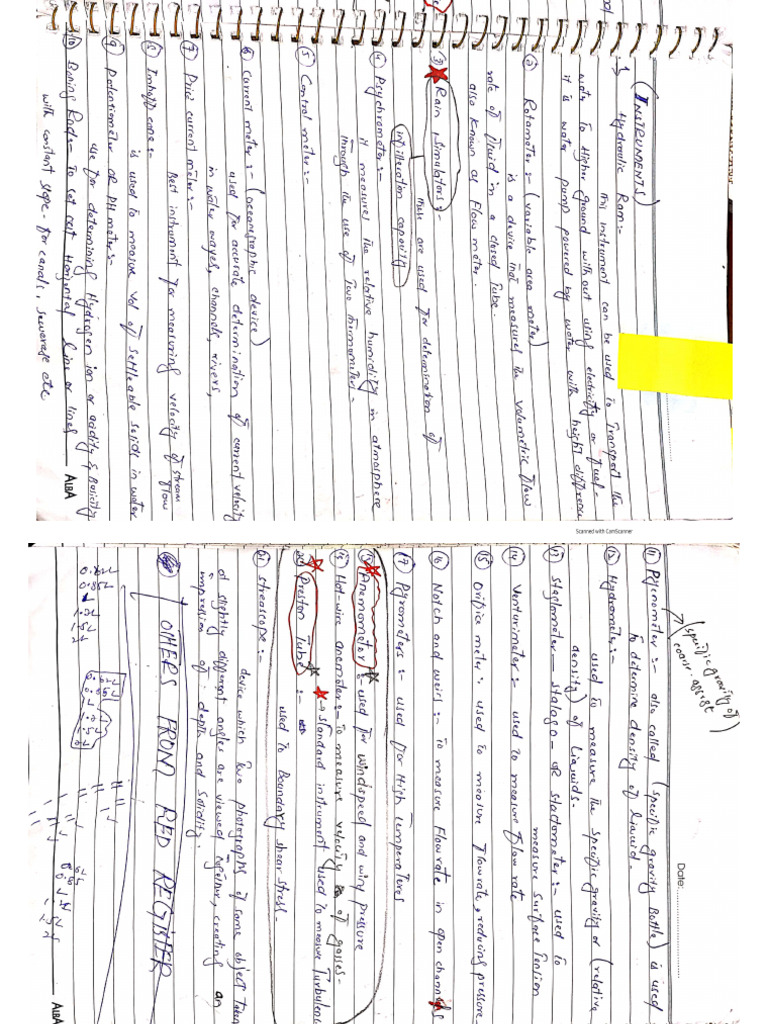 (INSTRUMENTS)
1 Hydraulic Ram :-
This instrument can be used to Transport the
water to Higher ground without using electricity or fuel.
it is water pump powered by water with height difference
② Rotameter :- (variable area meter)
is a device that measures the volumetric flow
rate of fluid in a closed Tube.
also known as Flow meter.
③ Rain Simulators :-
these are used for determination of
infilteration capacity
④ Psychrometer :-
it measures the relative humidity in atmosphere
through the use of Two thermometers -
⑤ Control meter :-
⑥ Current meter :- (oceanographic device)
used for accurate determination of current velocity
in water ways, channels, rivers,
⑦ Price current meter :-
Best instrument for measuring velocity of stream
flow
⑧ Imhoff cone :-
is used to measure vol of settleable solids in water
⑨ Potentiometer OR PH meter :-
use for determining Hydrogen ion or acidity & basicity
⑩ Boning Rods - To set out Horizontal line or lines
with constant slope - for canals, sewerage etc
ALBA
Scanned with CamScanner
Date:
(specific gravity of
coarse aggregt
⑪ Pycnometer :- also called (specific gravity Bottle) is used
to determine density of liquid.
⑫ Hydrometer :-
used to measure the specific gravity or (relative
density) of liquids.
⑬ Staglometer - Stalago - OR stactometer :- used to
measure surface tension
⑭ Venturimeter :- used to measure flow rate
⑮ Orifice meter : used to measure flow rate, reducing pressure
⑯ Notch and weirs :- To measure flow rate in open channels
⑰ Pyrometers :- used for High temperatures
⑱ Pnemometer : used for windspeed and wing pressure
⑲ Hot-wire anemometer :- To measure velocity of gasses -
→ standard instrument used to measure Turbulence
⑳ Preston Tube :-
used to Boundary shear stress -
㉑ streoscope :-
device which two photographs of same object taken
at slightly different angles are viewed together, creating an
impression of depth and solidity.
OTHERS FROM RED REGISTER
ALBA